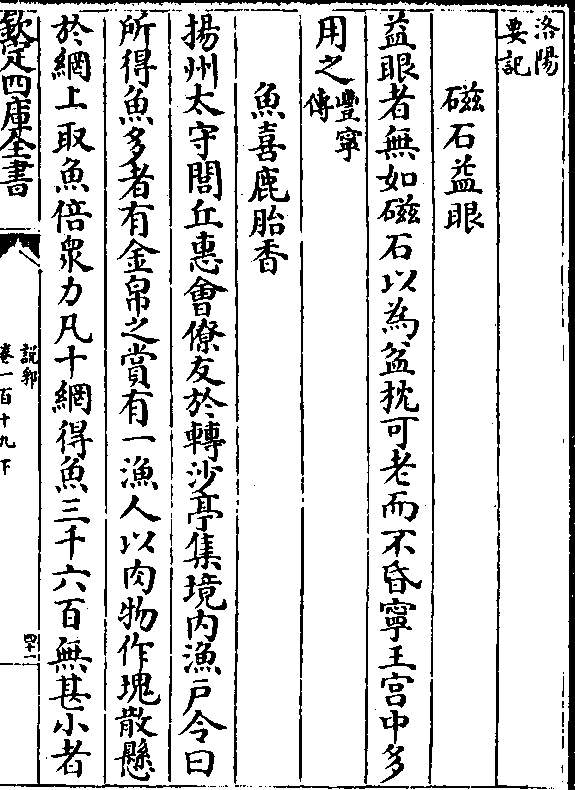 洛陽
要記
磁石益眼
益眼者無如磁石以為盆枕可老而不昏寧王宮中多
用之豐寧
傳
魚喜鹿胎香
揚州太守閭丘惠會僚友於轉沙亭集境内漁戶令曰
所得魚多者有金帛之賞有一漁人以肉物作塊散懸
於網上取魚倍衆力凡十網得魚三千六百無甚小者
欽定四庫全書
說郛
卷一百十九下
四十一